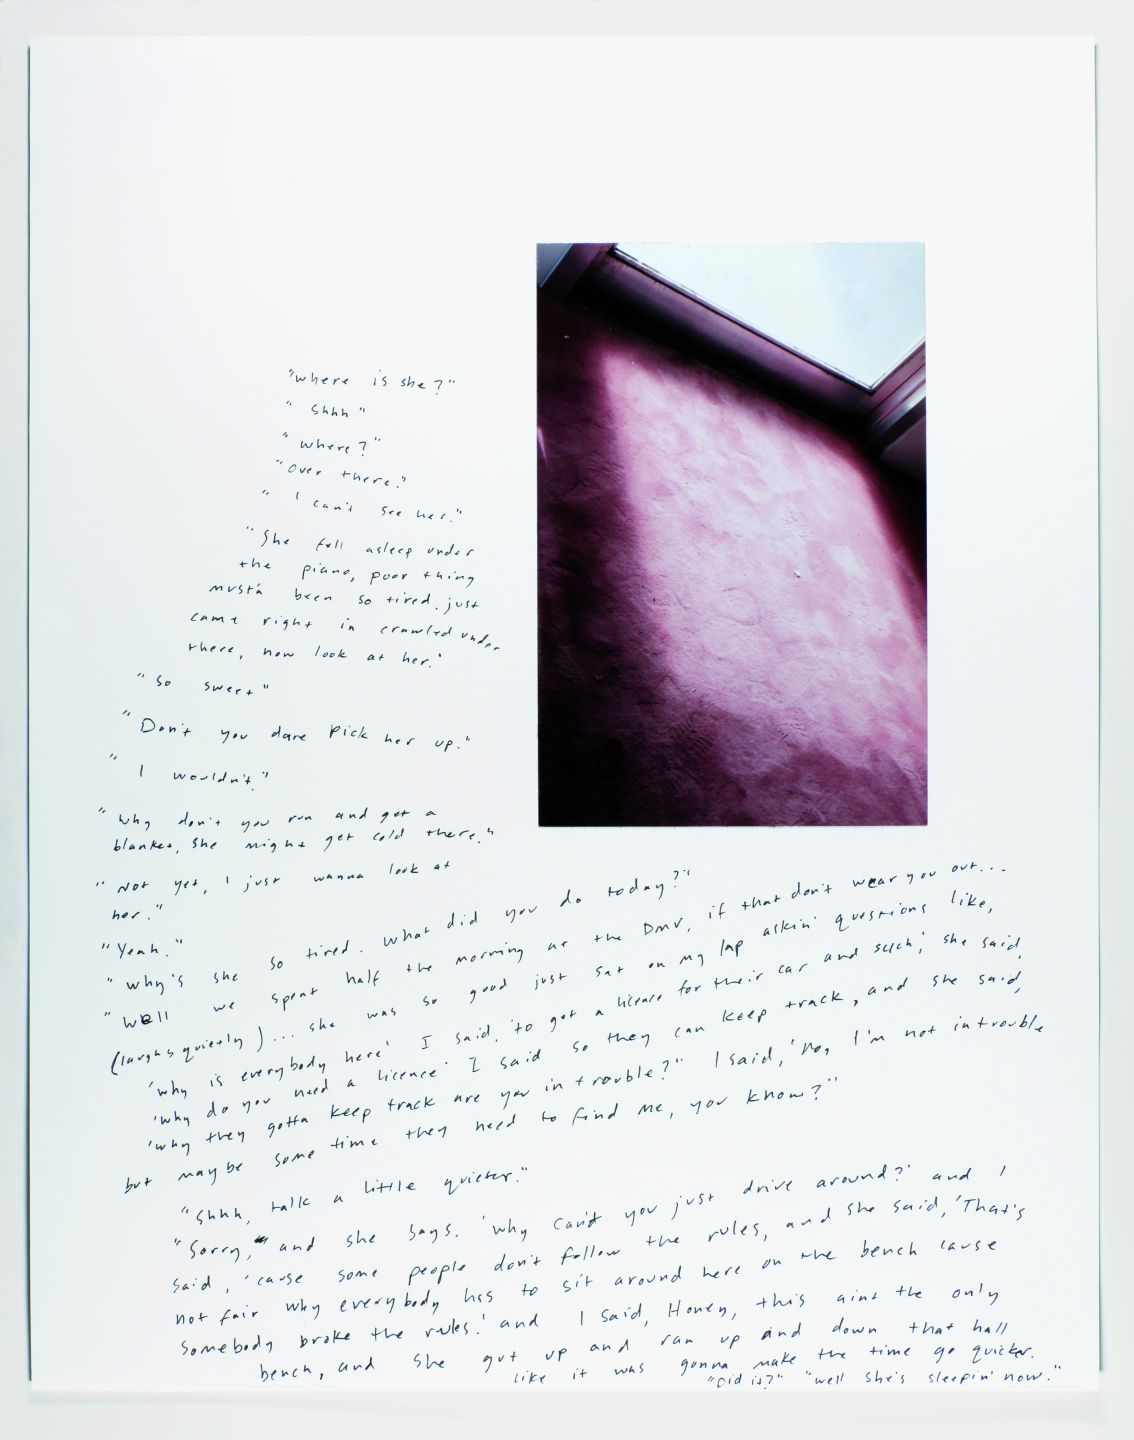 "where is she?"
"Shhh"
"where?"
"over there."
"I can't see her."
"She fell asleep under
the piano, poor thing
must'a been so tired. just
came right in crawled under
there, now look at her."
"So sweet"
"Don't you dare pick her up."
"I wouldn't."
"why don't you run and get a
blanket, she might get cold there."
"Not yet, I just wanna look at
her."
"Yeah."
"why's she so tired. What did you do today?"
"Well we spent half the morning at the DMV, if that don't wear you out...
(laughs quietly)... she was so good just sat on my lap askin' questions like,
'why is everybody here' I said, 'to get a licence for their car and such,' she said,
'why do you need a licence' I said so they can keep track, and she said,
'why they gotta keep track are you in trouble?" I said, 'no, I'm not in trouble
but maybe some time they need to find me, you know?"
"Shhh, talk a little quieter."
"Sorry," and she says, 'why can't you just drive around?' and I
said, 'cause some people don't follow the rules, and she said, 'That's
not fair why everybody has to sit around here on the bench cause
somebody broke the rules.' and I said, Honey, this aint the only
bench, and she got up and ran up and down that hall
like it was gonna make the time go quicker.
"Did it?" "well she's sleepin' now."